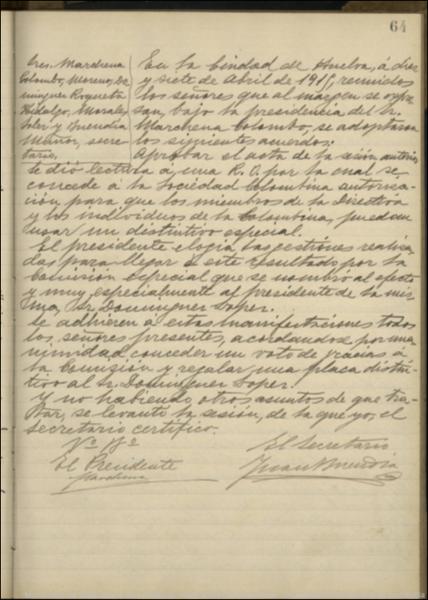 64
Sres. Marchena
Colombo, Moreno, Do
minguez Roqueta
Hidalgo, Morales,
Soler y Buendia
Muñoz, secre
tario,
En la Ciudad de Huelva, á diez
y siete de Abril de 191, reunidos
los señores que al margen se expre
san, bajo la presidencia del Sr.
Marchena Colombo, se adoptaron
los siguientes acuerdos:
Aprobar el acta de la sesión anterior
Se dió lectura á una R. O. por la cual se
concede á la Sociedad Colombina autoriza
ción para que los miembros de la Directiva
y los individuos de la Colombina, puedan
usar un distintivo especial.
El presidente elogia las gestiones realiza
das para llegar á este resultado por la
Comisión especial que se nombró al efecto
y muy especialmente al presidente de la mis
ma, Sr. Dominguez Soper.
Se adhieren á estas manifestaciones todos
los señores presentes, acordandose por una
nimidad conceder un voto de gracias á
la Comisión y regalar una placa distin
tivo al Sr. Dominguez Soper.
Y no habiendo otros asuntos de que tra-
tar, se levanta la sesión, de la que yo, el
Secretario certifico.
Vº Bº
El Presidente
Marchena
El Secretario
Juan Buendia